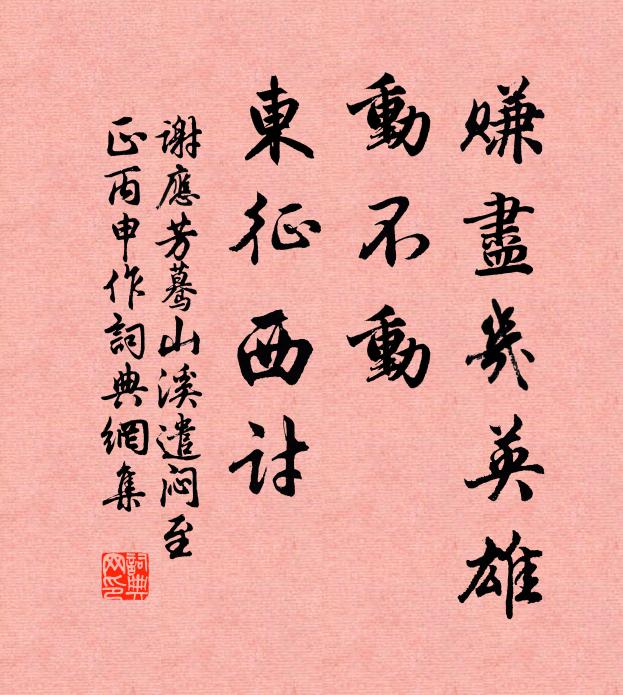 賺盡幾英雄
動不動
東征西討
謝應芳驀山溪遣闷至
正丙申作詞典網集
詞典网印